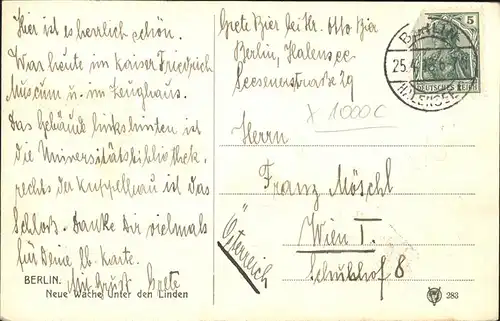 Hier ist es herrlich schön.
War heute im Kaiser Friedrich
Museum u. im Zeughaus.
Das Gebäude links hinten ist
die Universitätsbibliothek,
rechts der Kuppelbau ist das
Schloß. Danke Dir vielmals
für Deine lb. Karte.
Mit Gruß Grete
BERLIN.
Neue Wache Unter den Linden
Grete Bier bei Hr. Otto Bier
Berlin, Halensee
Seesenerstraße 29
5
DEUTSCHES REICH
BERLIN
25.4.
HALENSEE
1000C
Herrn
Franz Möschl
Wien I.
Schulhof 8
Österreich
283